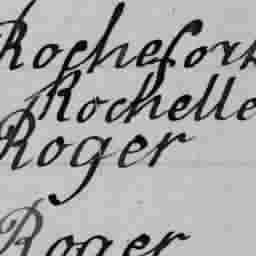 Rochefort
Rochelle
Roger
Roger